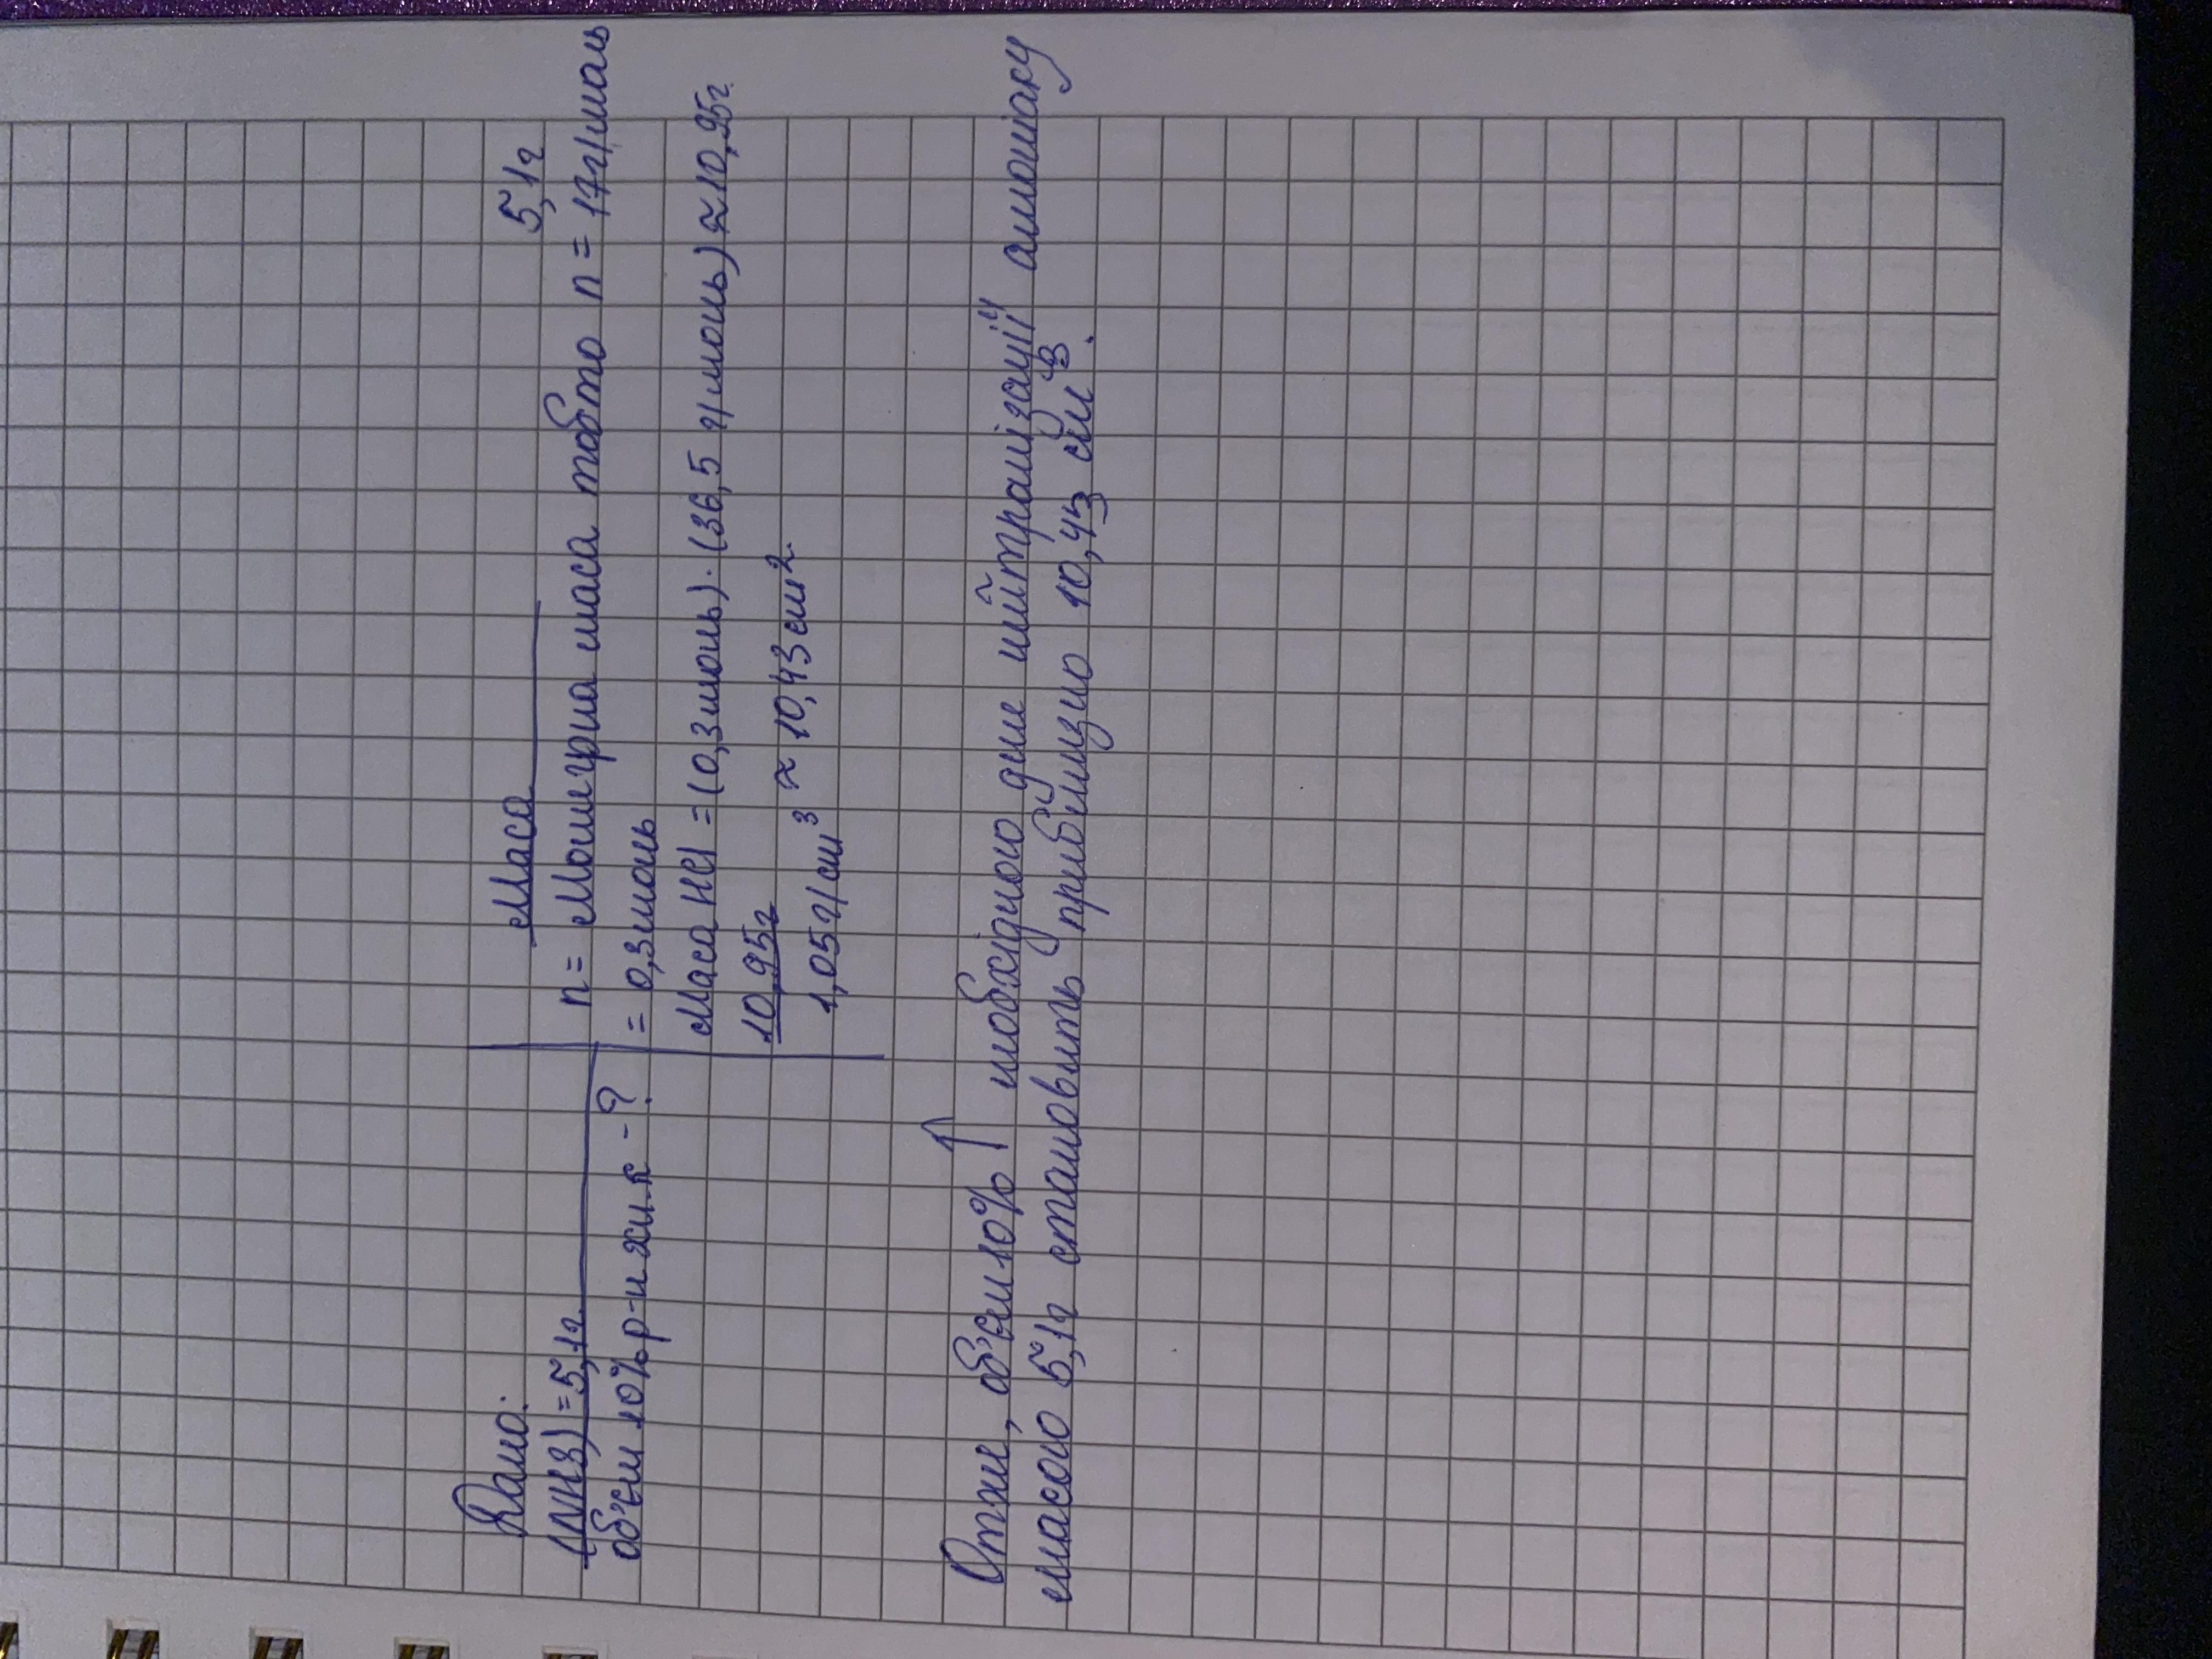 Дано:
(NH3)=5,1г.
об'єм 10% р-и хи.к -?
Маса 5,1г
n= Молярна маса тобто n = 17г/моль
= 0,3моль
Маса HCl = (0,3моль)·(36,5 г/моль)≈10,95г.
10,95г
1,05г/см³ ≈ 10,43см2.
Отже, об'єм 10% необхідного для нейтралізації аміаку
масою 5,1г становить приблизно 10,43 см³.